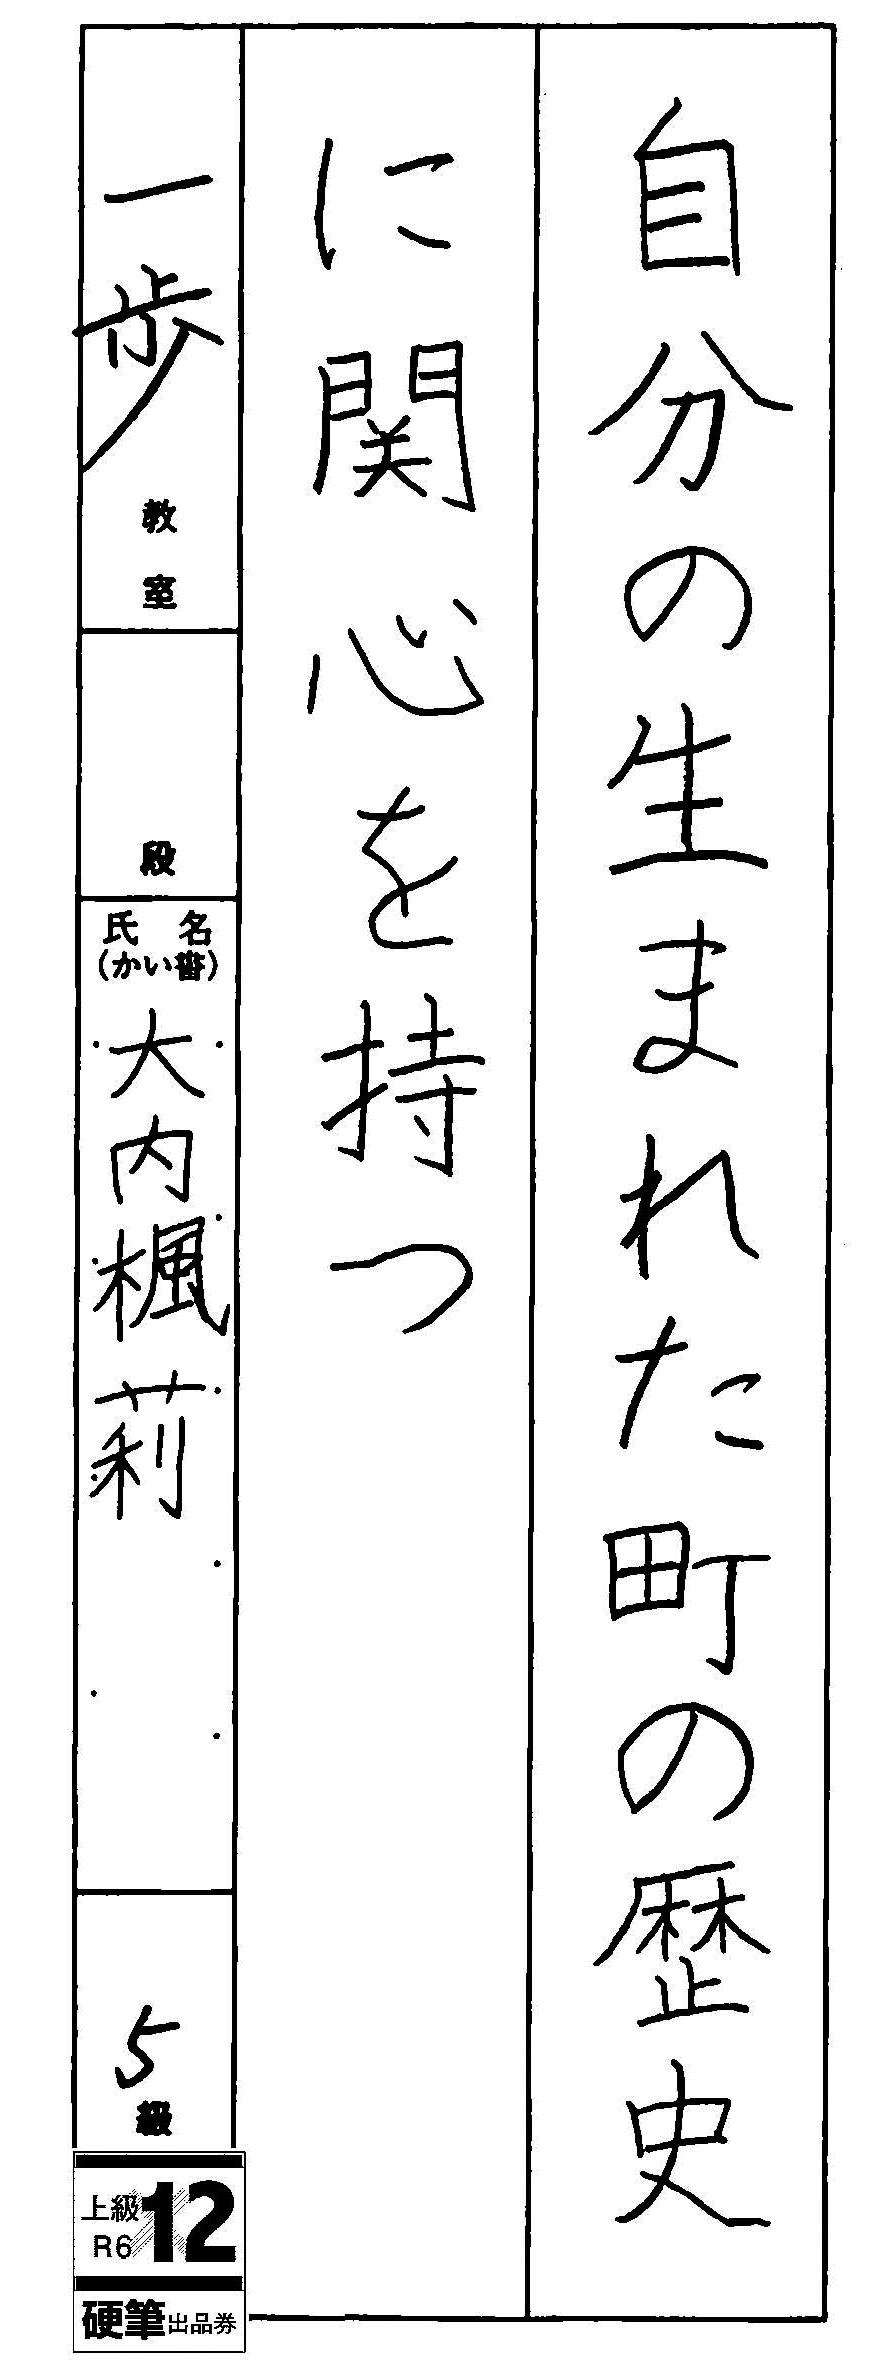 自分の生まれた町の歴史
に関心を持つ
一歩
教室
段
氏名
(かい書)
大内楓莉
5級
上級
R6
12
硬筆出品券